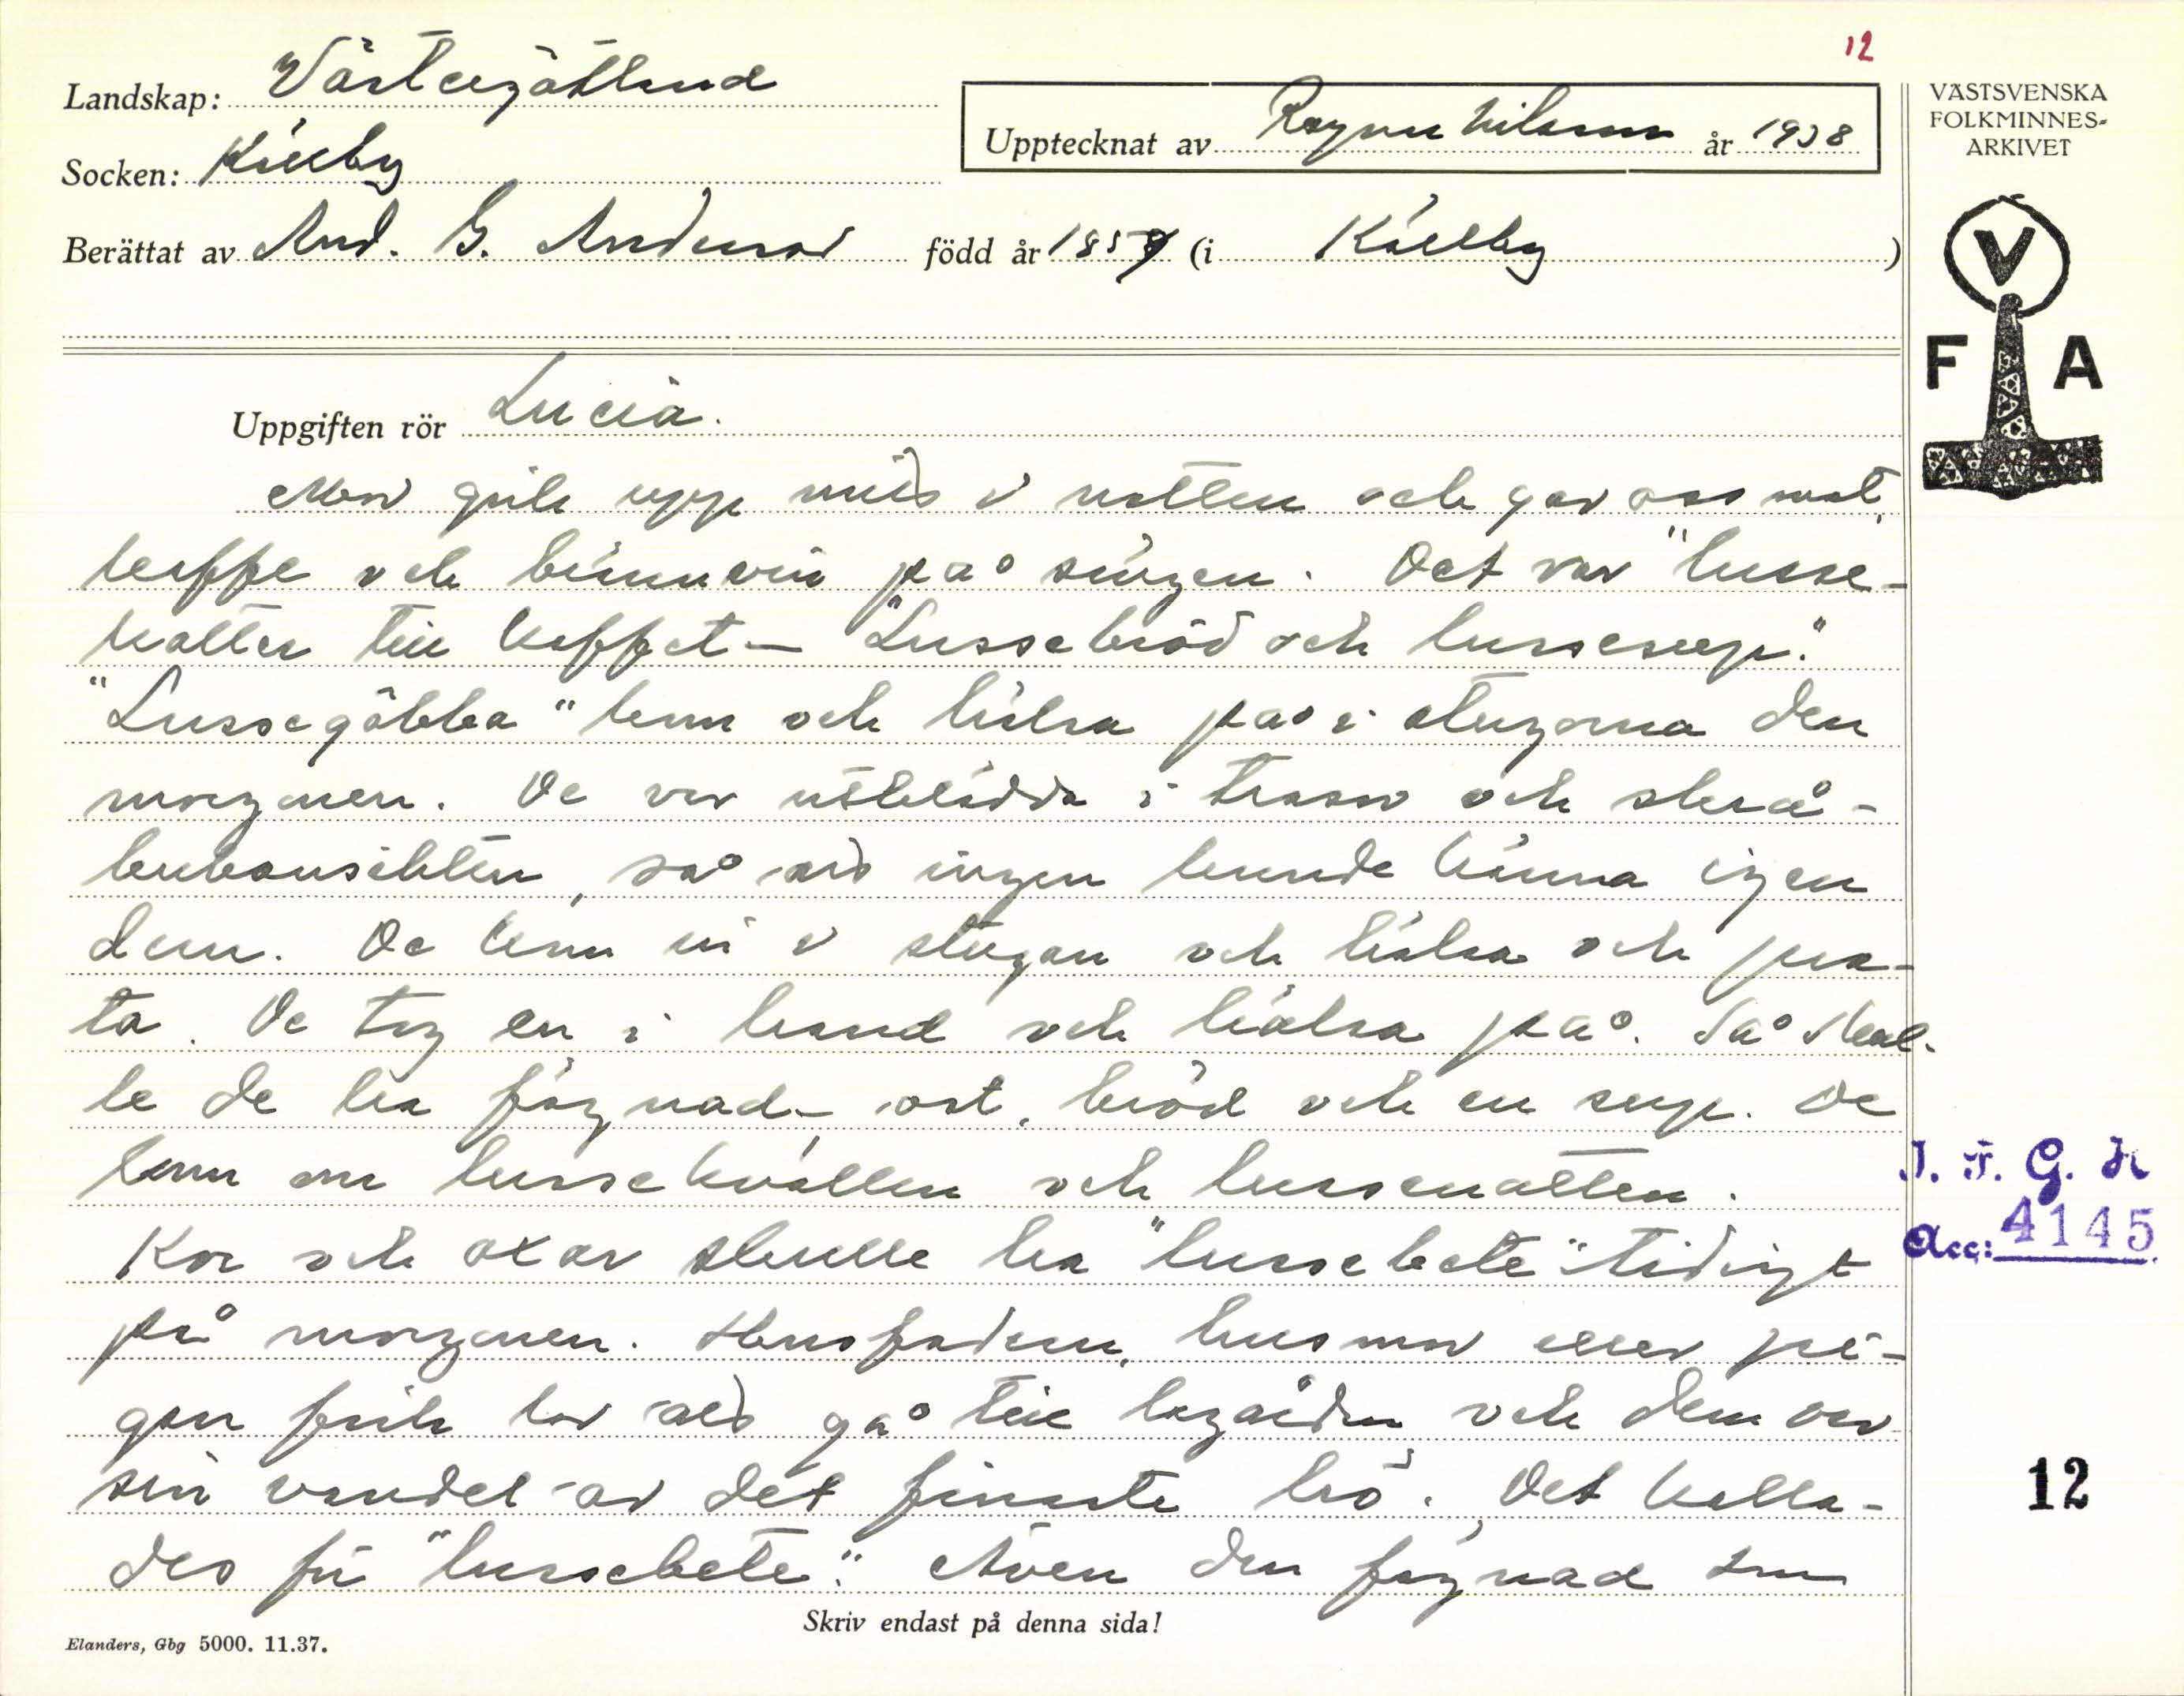 12
Landskap: Västergötland
Socken: Källby
Upptecknat av Ragnar Nilsson år 1938
Berättat av And. G. Anderson född år 1859 (i Källby)
VÄSTSVENSKA
FOLKMINNES-
ARKIVET
V
F A
Uppgiften rör Lucia.
Mor gick upp mitt i natten och gav oss mat,
kaffe och brännvin på sängen. Det var "lusse-
katter till kaffet – "Lussebröd och lussesup."
"Lussegöbba" kom och hälsa på i stugorna den
morgonen. De var utklädda i trasor och skrå-
bukansikten, så att ingen kunde känna igen
dem. De kom in i stugan och hälsa och pra-
ta. De tog en i hand och hälsa på. Så skul-
le de ha fägnad – ost, bröd och en sup. De
kom om lussekvällen och lussenatten.
Kor och oxar skulle ha "lussebete" tidigt
på morgonen. Husfadern, husmor eller pi-
gan fick lov att gå till lagårdn och dem var
sin vandel av det finaste hö. Det kalla-
des för "lussebete." Även den fägnad som
I. F. G. H
Acc: 4145
12
Skriv endast på denna sida!
Elanders, Gbg 5000. 11.37.